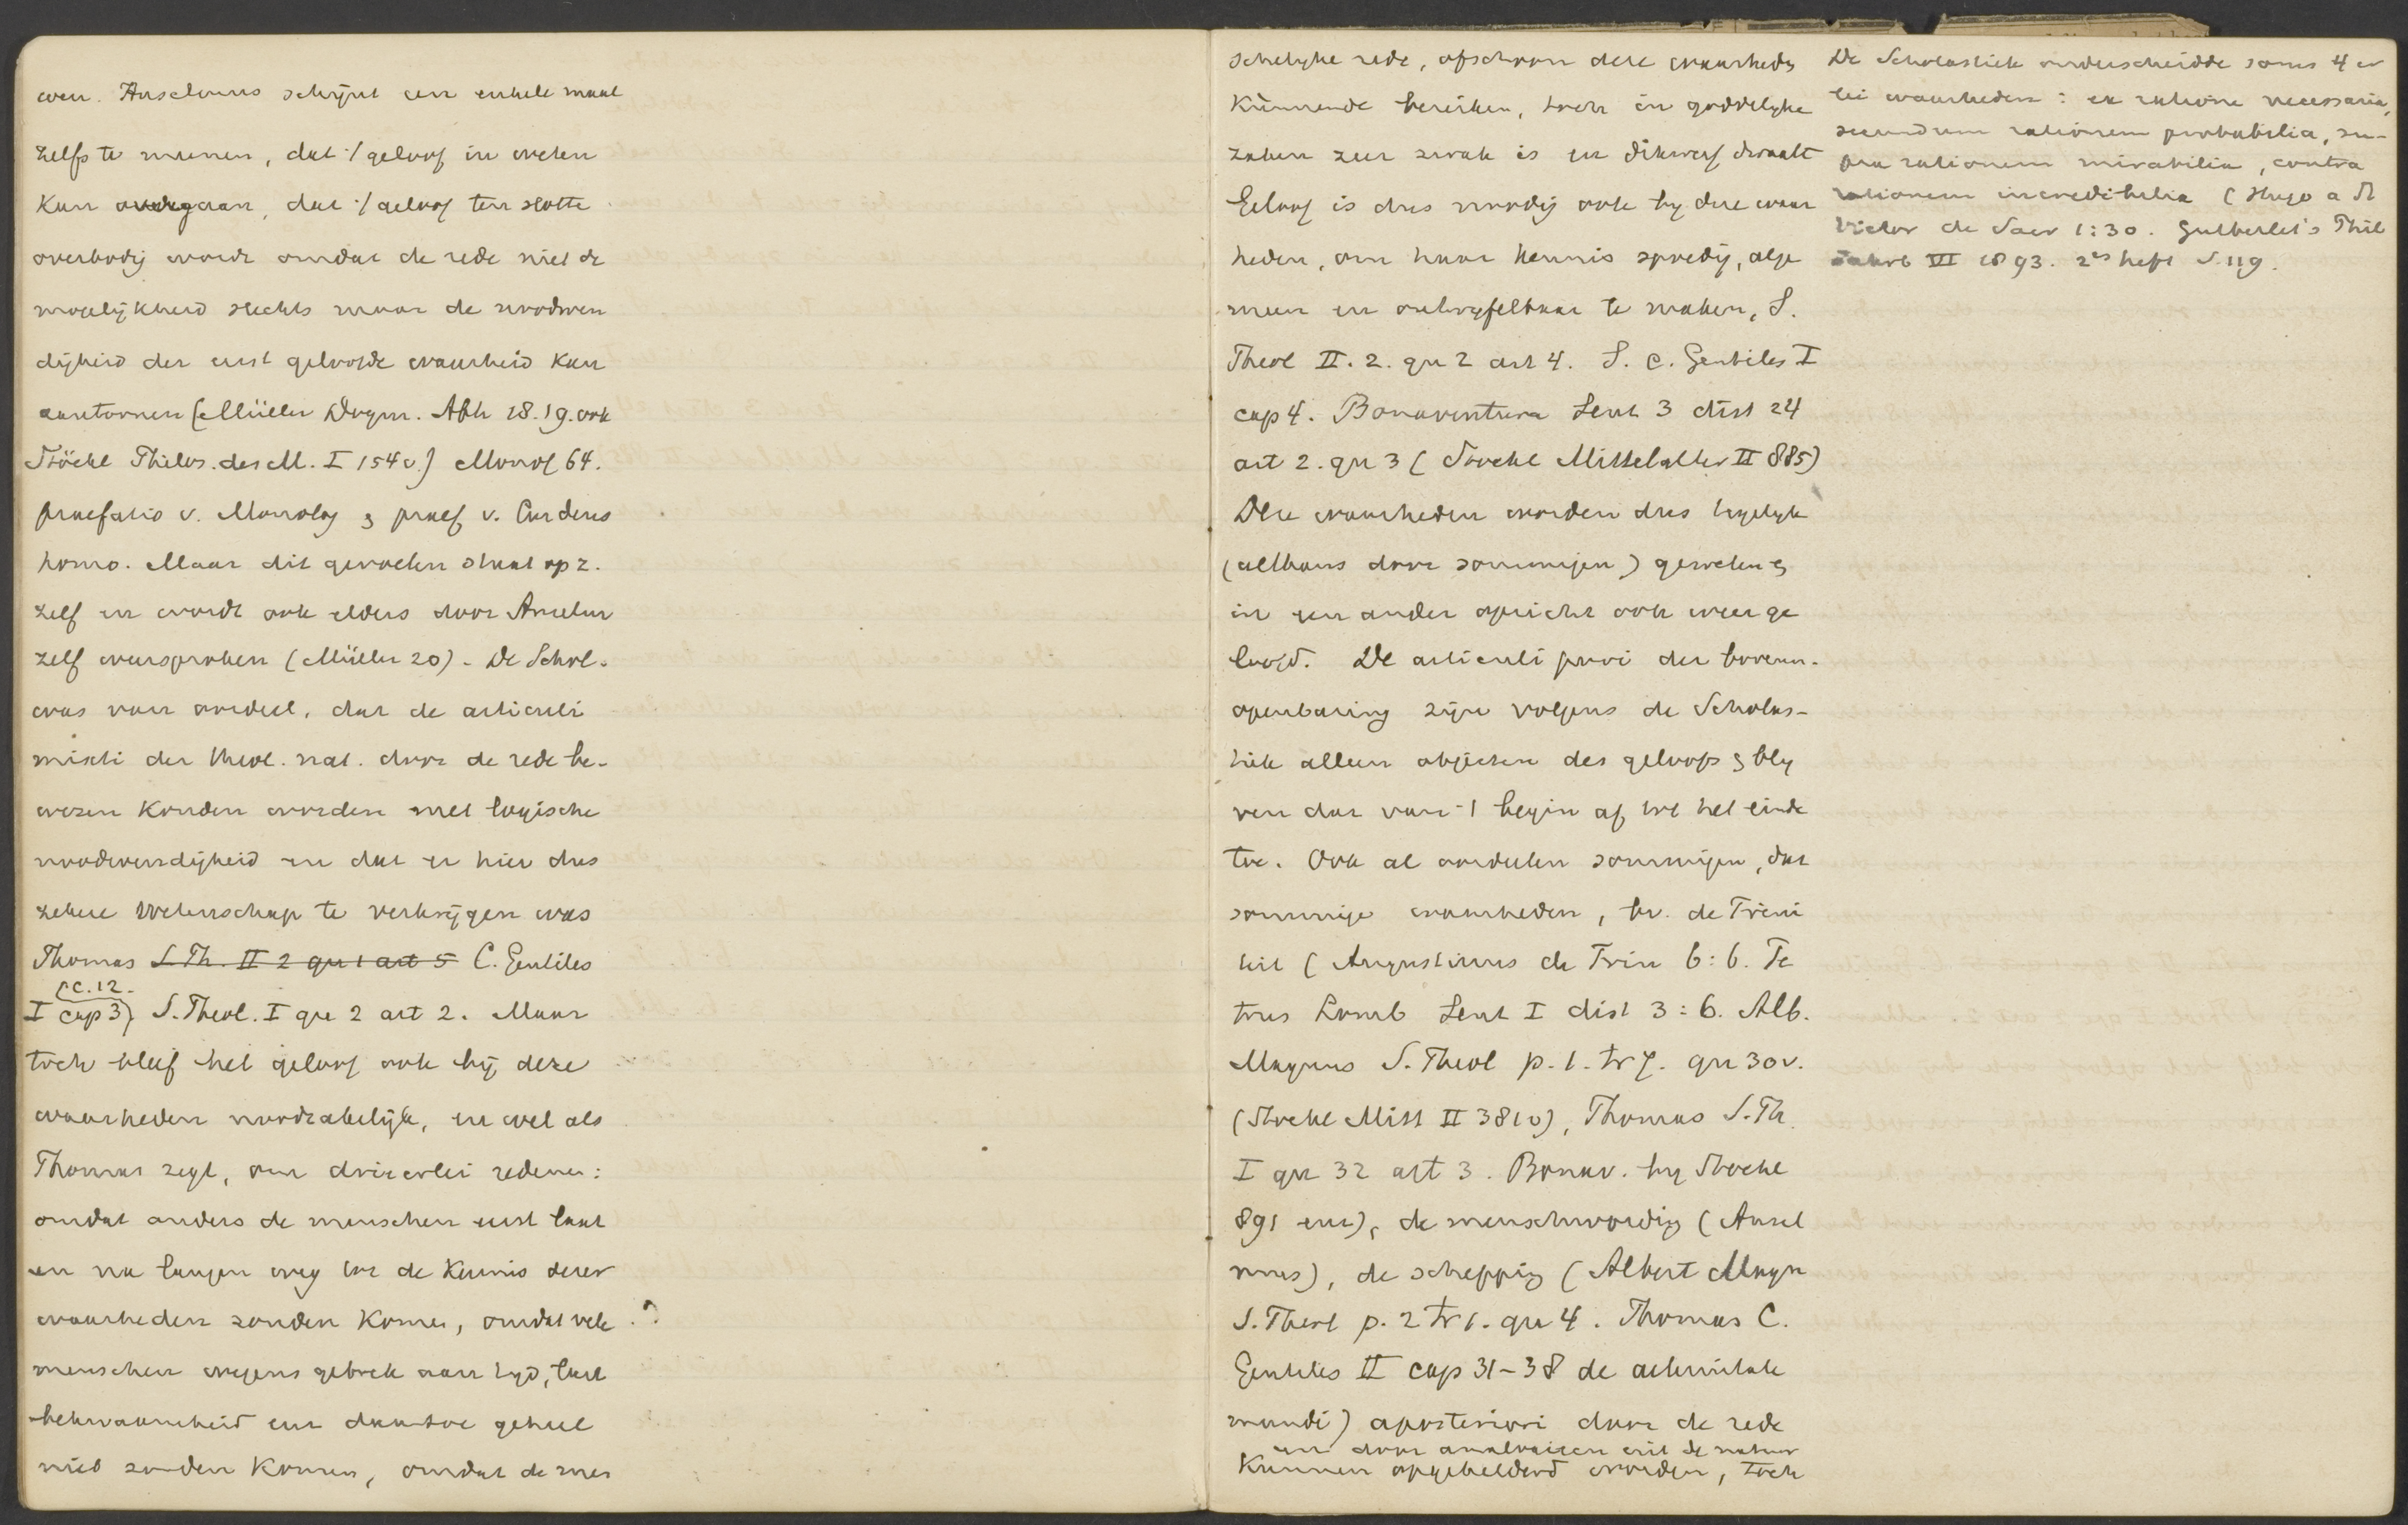 ven. Anselmus schijnt een enkele maal
zelfs te meenen, dat 't geloof in weten
kan overgaan, dat 't geloof ten slotte
overbodig wordt omdat de rede niet de
mogelijkheid slechts maar de noodwen
digheid der eerst geloofde waarheid kan
aantoonen (Müller Dogm. Abh 18.19. ook
Stöckl Philos. des M. I 154 v.) Monol 64.
praefatio v. Monolog & praef v. Cur deus
homo. Maar dit gevoelen staat op z.
zelf en wordt ook elders door Anselm
zelf weersproken (Müller 20) - De Schol.
was van oordeel, dat de articuli
mixti der theol. nat. door de rede be-
wezen konden worden met logische
noodwendigheid en dat er hier dus
zekere wetenschap te verkrijgen was
Thomas S. Th. II 2 qu 1 art 5 C. Gentiles
(c. 12.
I cap 3) S. Theol. I qu 2 art 2. Maar
toch bleef het geloof ook bij deze
waarheden noodzakelijk, en wel als
Thomas zegt, om drieerlei redenen:
omdat anders de menschen eerst laat
en na langen weg tot de kennis dezer
waarheden zouden komen, omdat vele
menschen wegens gebrek aan tijd, lust
bekwaamheid enz daartoe geheel
niet zouden komen, omdat de men
schelyke rede, ofschoon deze waarheden
kunnende bereiken, toch in goddelyke
zaken zeer zwak is en dikwerf dwaalt
Geloof is dus noodig ook by deze waar
heden, om haar kennis spoedig, alge
meen en ontwyfelbaar te maken, S.
Theol II. 2. qu 2 art 4. S. c. Gentiles I
cap 4. Bonaventura Sent 3 dist 24
art 2. qu 3 (Stoeckl Mittelalter II 885)
Deze waarheden worden dus tegelyk
(althans door sommigen) geweten &
in een ander opzicht ook weer ge
loofd. De articuli puri der bovenn.
openbaring zijn volgens de Scholas-
tiek alleen objecten des geloofs & bly
ven dat van 't begin af tot het einde
toe. Ook al oordeelen sommigen, dat
sommige waarheden, bv. de Trini
teit (Augustinus de Trin 6:6. Pe
trus Lomb Sent I dist 3:6. Alb.
Magnus S. Theol p. 1. tr 7. qu 30 v.
(Stoeckl Mitt II 381 v), Thomas S. Th.
I qu 32 art 3. Bonav. by Stoeckl
891 enz), de menschwording (Ansel
mus), de schepping (Albert Magn
S. Theol p. 2 tr 1. qu 4. Thomas C.
Gentiles II cap 31-38 de aeternitate
mundi) aposteriori door de rede
en door analogieen uit de natuur
kunnen opgehelderd worden, toch
De Scholastiek onderscheidde soms 4 er
lei waarheden: ex ratione necessaria,
secundum rationem probabilia, su-
pra rationem mirabilia, contra
rationem incredibilia (Hugo a St
Victor de Sacr 1:30. Gutberlet's Phil
Jahrb VI 1893. 2es heft S. 119.